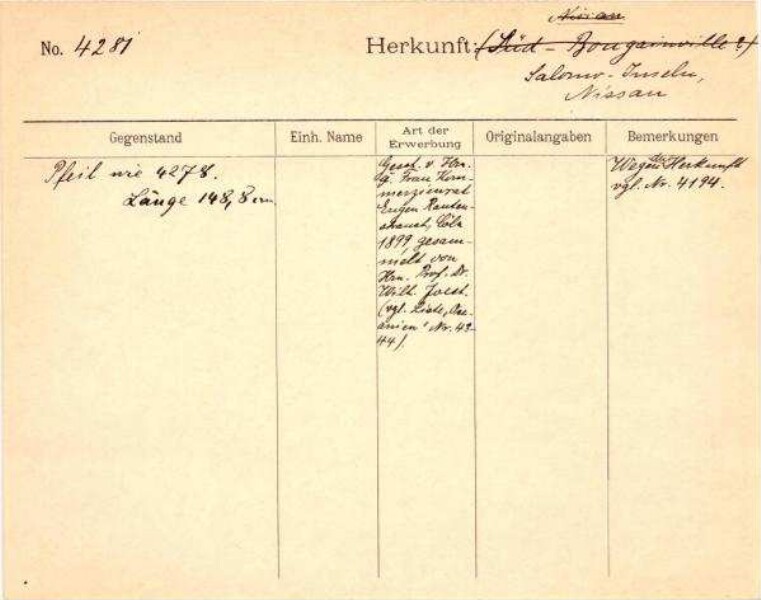 Nissan
No. 4281 Herkunft: (Süd-Bougainville?)
Salomo-Inseln,
Nissan
Gegenstand
Einh. Name
Art der
Erwerbung
Originalangaben
Bemerkungen
Pfeil wie 4278.
Länge 148,8 cm
Gesch. v. Hrn.
q. Frau Kom-
merzienrat
Eugen Rauten-
strauch, Cöln
1899, gesam-
melt von
Hrn. Prof. Dr.
Wilh. Joest.
(vgl. Liste, Oze-
anien' Nr. 43-
44).
Wegen der Herkunft
vgl. Nr. 4194.